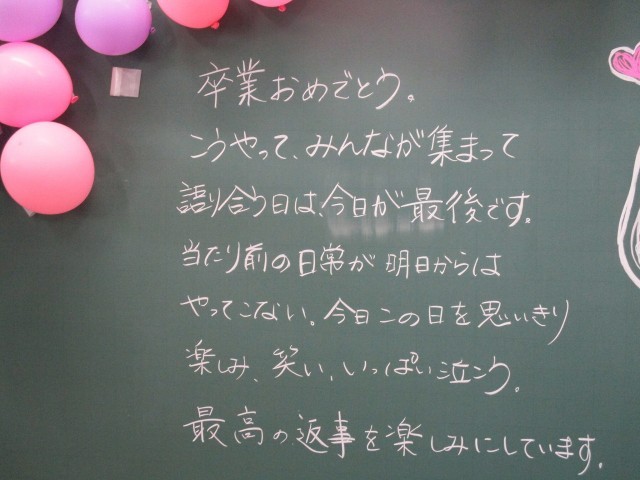 卒業おめでとう。
こうやって、みんなが集まって
語り合う日は、今日が最後です。
当たり前の日常が明日からは
やってこない。今日この日を思いきり
楽しみ、笑い、いっぱい泣こう。
最高の返事を楽しみにしています。